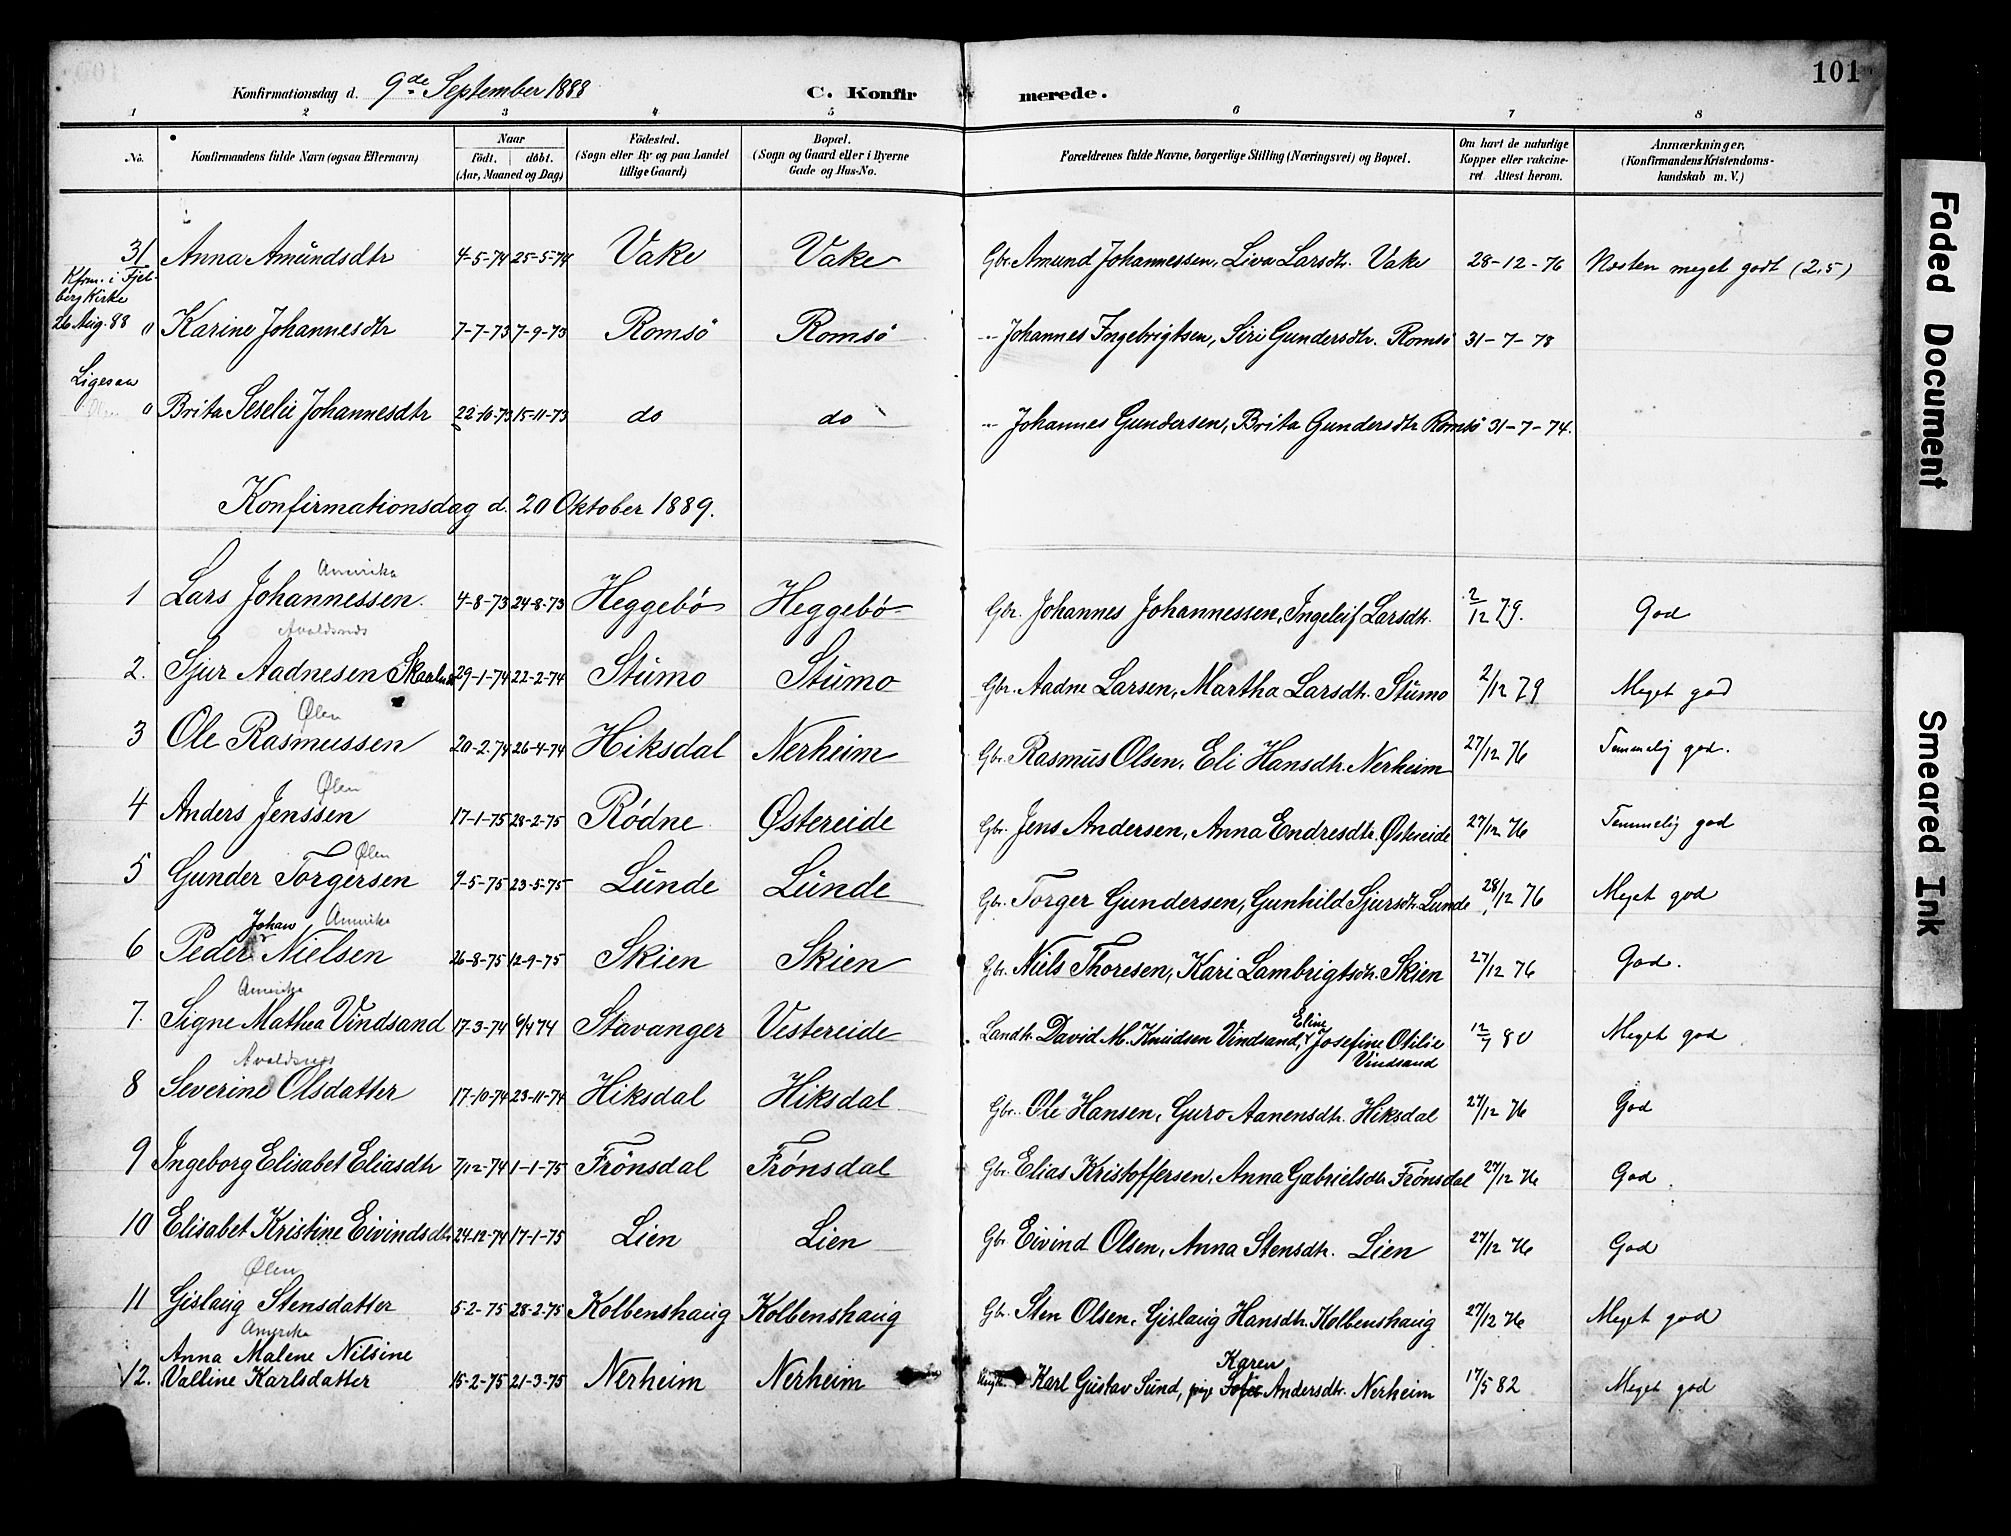 101
Konfirmationsdag d. 9de September 1888 C. Konfirmerede.
1 2 3 4 5 6 7 8
No. Konfirmandens fulde Navn (ogsaa Efternavn) Naar født. døbt. (Aar, Maaned og Dag) Fødested. (Sogn eller By og paa Landet tillige Gaard) Bopæl. (Sogn og Gaard eller i Byerne Gade og Hus-No. Forældrenes fulde Navne, borgerlige Stilling (Næringsvei) og Bopæl. Om havt de naturlige Kopper eller vakcineret. Attest herom. Anmærkninger, (Konfirmandens Kristendomskundskab m. V.)
31 Anna Amundsdtr 4-5-74 25-5-74 Vake Vake Gbr. Amund Johannessen, Liva Larsdtr. Vake 28-12-76 Næsten meget godt (2,5)
Kfrm. i Fjelberg Kirke
26 Aug. 88 0 Karine Johannesdtr 7-7-73 7-9-73 Romsö Romsö -"- Johannes Ingebrigtsen, Siri Gundersdtr. Romsö 31-7-78
Ligesaa
0 Brita Seselie Johannesdtr 22-10-73 15-11-73 do do -"- Johannes Gundersen, Brita Gundersdtr Romsö 31-7-74.
Konfirmationsdag d. 20 Oktober 1889.
Amerika
1 Lars Johannessen. 4-8-73 24-8-73 Heggebö Heggebö Gbr. Johannes Johannessen, Ingeleif Larsdtr. 2/12 79. God
Avaldsnes
2. Sjur Aadnesen 29-1-74 22-2-74 Stumo Stumo Gbr. Aadne Larsen, Martha Larsdtr. Stumo 2/12 79 Meget god
Ølen
3 Ole Rasmussen 20-2-74 26-4-74 Hiksdal Nerheim Gbr. Rasmus Olsen, Eli Hansdtr. Nerheim 27/12 76 Temmelig god.
Ølen
4 Anders Jenssen 17-1-75 28-2-75 Rödne Østereide Gbr. Jens Andersen, Anna Endresdtr. Østereide 27/12 76 Temmelig god
Ølen
5 Gunder Torgersen 9-5-75 23-5-75 Lunde Lunde Gbr. Torger Gundersen, Gunhild Sjursdtr. Lunde 28/12 76 Meget god
Johan Amerika
6 Peder Nielsen 26-8-75 12-9-75 Skien Skien Gbr. Niels Thoresen, Kari Lambrigtsdtr. Skien 27/12 76 God.
Amerika
7. Signe Mathea Vindsand 17-3-74 6/4 74 Stavanger Vestereide Landh. David M. Knudsen Vindsand, Eline Josefine Otilie Vindsand 12/7 80 Meget god
Avaldsnes
8 Severine Olsdatter 17-10-74 23-11-74 Hiksdal Hiksdal Gbr. Ole Hansen, Guro Aanensdtr. Hiksdal 27/12 76 God
9 Ingeborg Elisabet Eliasdtr 7/12-74 1-1-75 Frönsdal Frönsdal Gbr. Elias Kristoffersen, Anna Gabrielsdtr Frönsdal 27/12 76 God.
10 Elisabet Kristine Eivindsdtr 24-12-74 17-1-75 Lien Lien Gbr Eivind Olsen, Anna Stensdtr. Lien 27/12 76 God
Ølen
11 Gislaug Stensdatter 5-2-75 28-2-75 Kolbenshaug Kolbenshaug Gbr. Sten Olsen, Gislaug Hansdtr. Kolbenshaug 27/12 76 Meget god
Amerika
Anna Malene Nilsine
12. Valline Karlsdatter 15-2-75 21-3-75 Nerheim Nerheim Karl Gustav Sund, pige Karen Andersdtr. Nerheim 17/5 82 Meget god
Faded Document
Smeared Ink